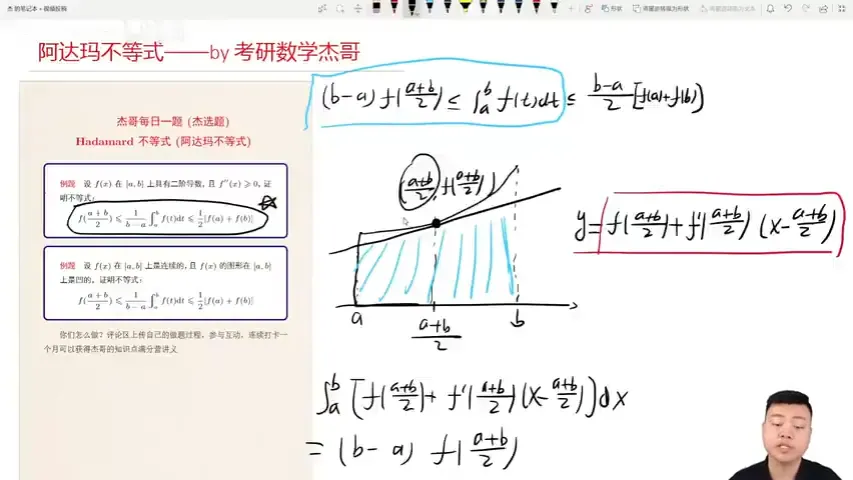 杰的笔记本 • 视频投稿
阿达玛不等式——by 考研数学杰哥
杰哥每日一题 (杰选题)
Hadamard 不等式 (阿达玛不等式)
例题 设 f(x) 在 [a,b] 上具有二阶导数, 且 f''(x) ⩾ 0, 证
明不等式:
f((a+b)/2) ⩽ 1/(b−a) ∫_a^b f(t)dt ⩽ 1/2[f(a)+f(b)]
例题 设 f(x) 在 [a,b] 上是连续的, 且 f(x) 的图形在 [a,b]
上是凹的, 证明不等式:
f((a+b)/2) ⩽ 1/(b−a) ∫_a^b f(t)dt ⩽ 1/2[f(a)+f(b)]
你们怎么做? 评论区上传自己的做题过程, 参与互动, 连续打卡一
个月可以获得杰哥的知识点满分营讲义
(b−a) f((a+b)/2) ≤ ∫_a^b f(t)dt ≤ (b−a)/2 [f(a)+f(b)]
((a+b)/2, f((a+b)/2))
y= f((a+b)/2)+f'((a+b)/2) (x−(a+b)/2)
a (a+b)/2 b
∫_a^b [f((a+b)/2)+ f'((a+b)/2)(x−(a+b)/2)]dx
= (b−a) f((a+b)/2)